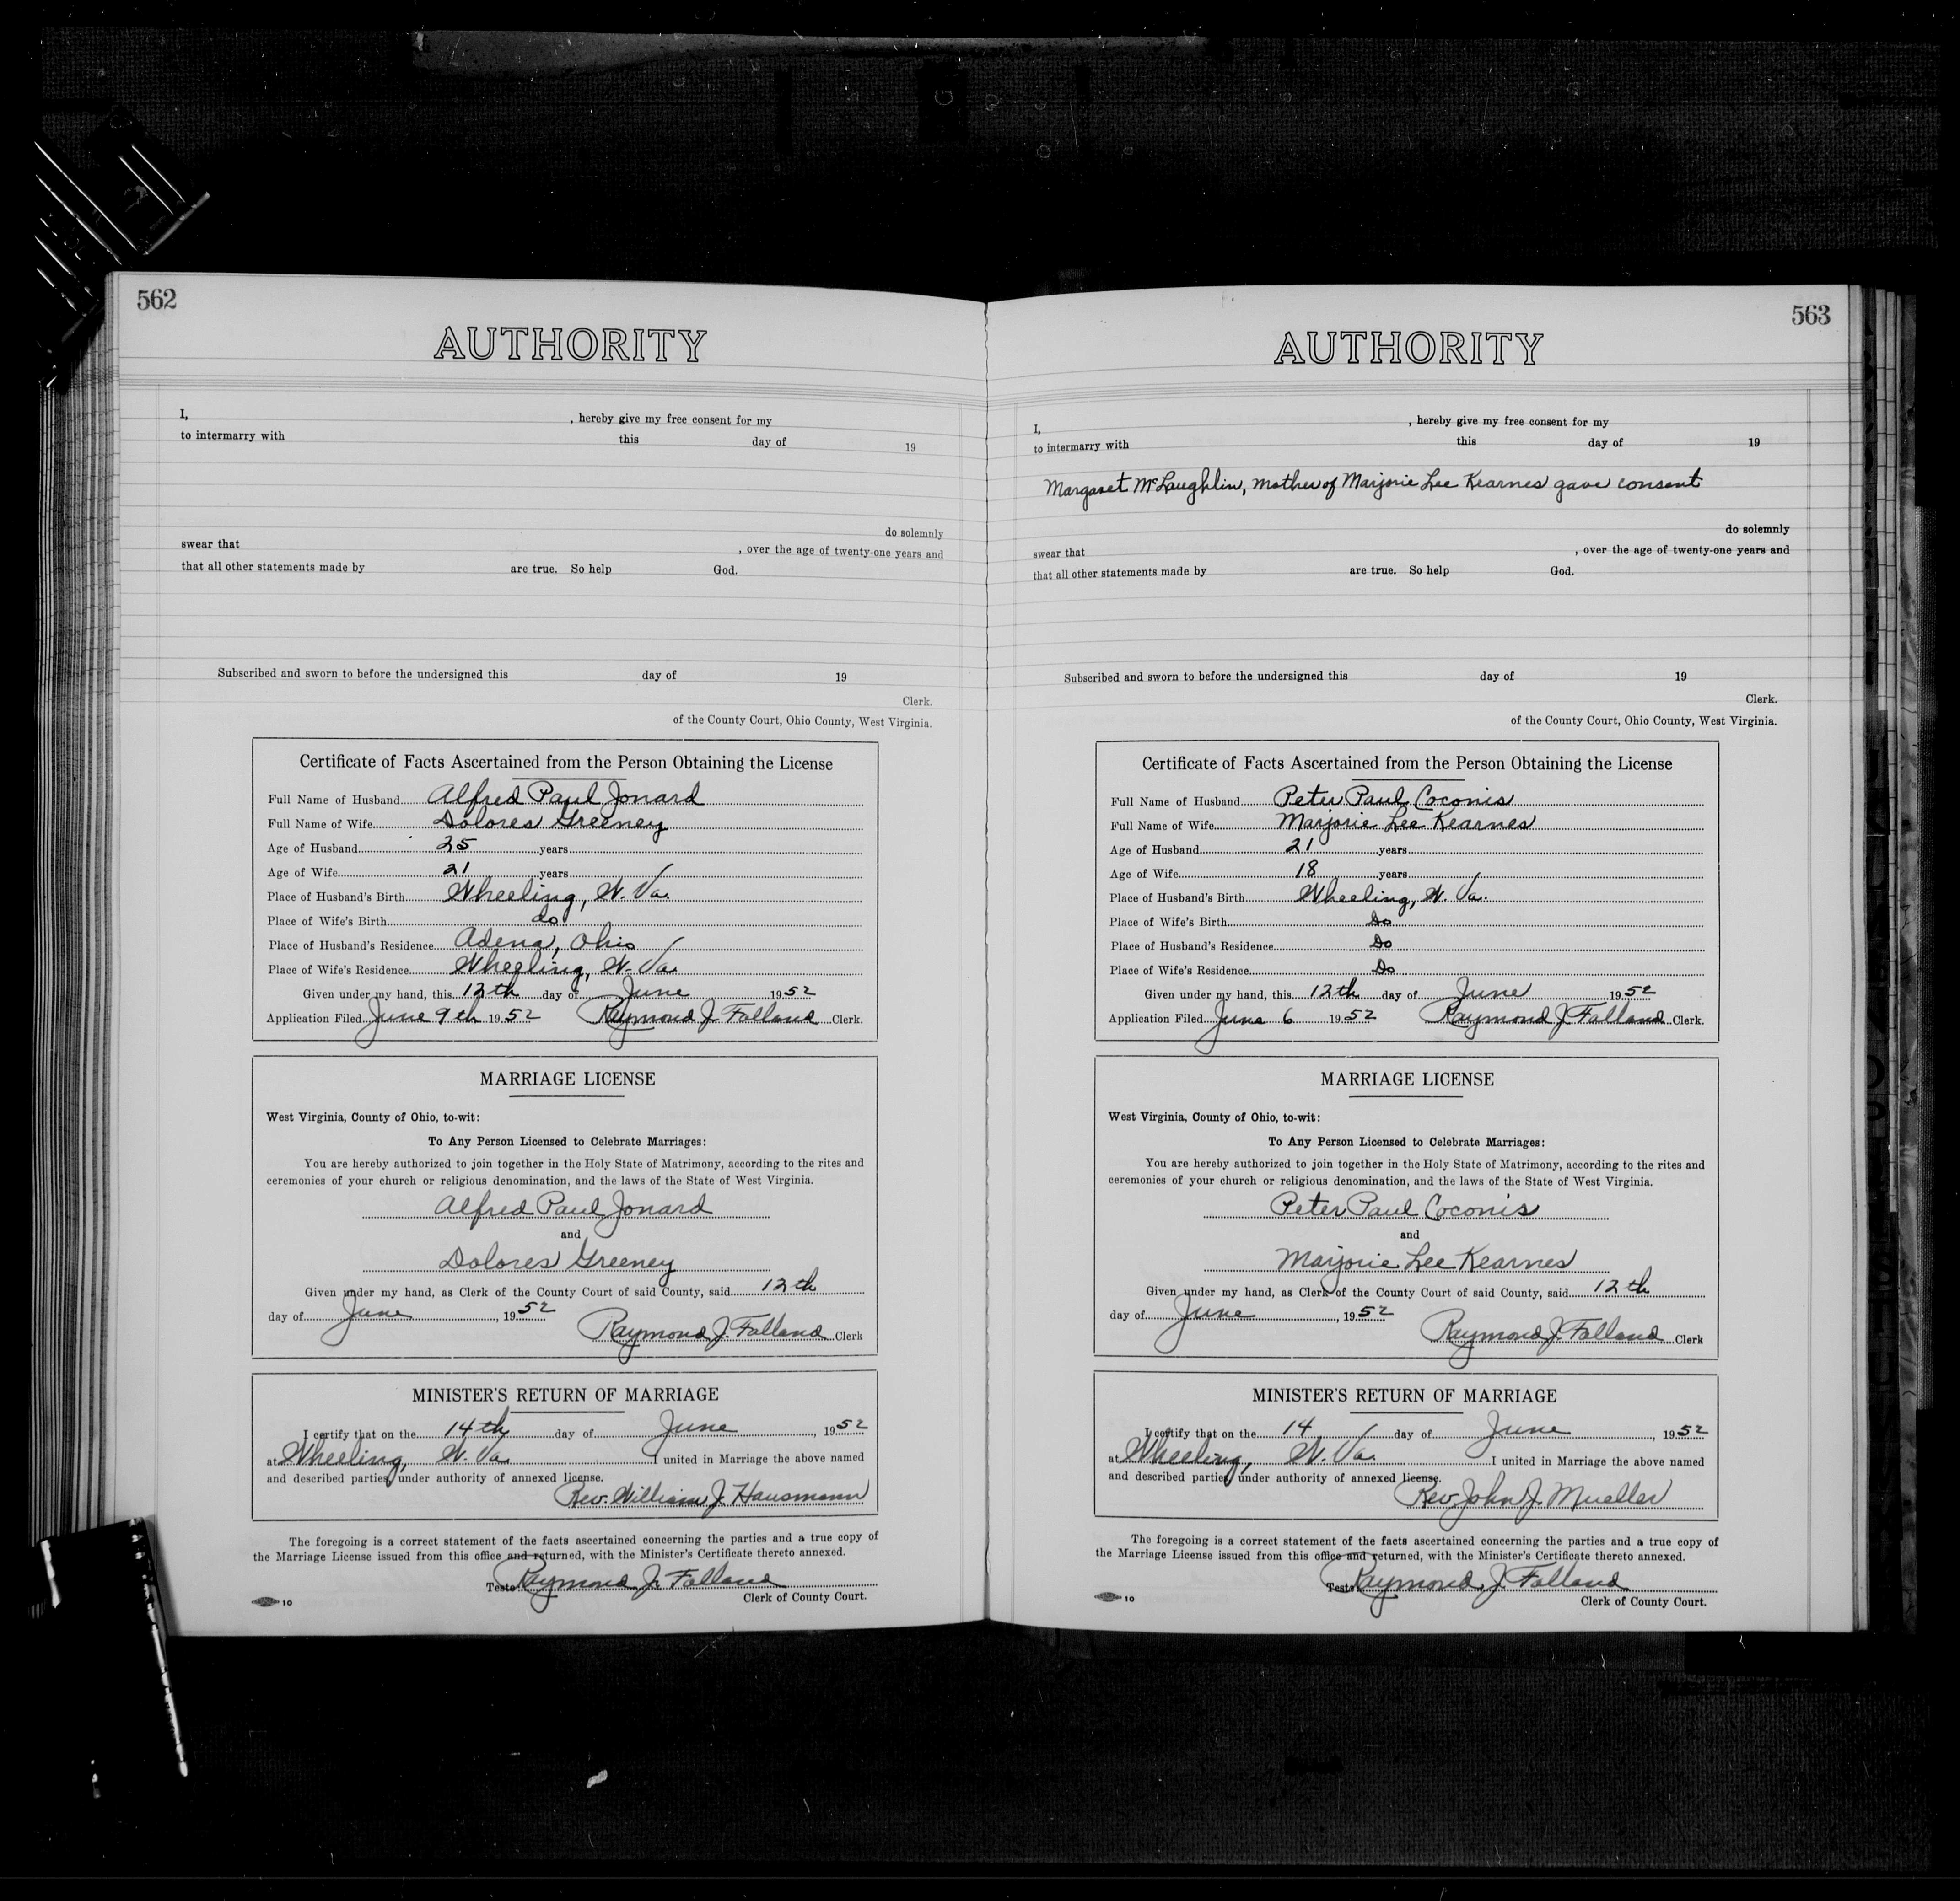 562
AUTHORITY
I, , hereby give my free consent for my
to intermarry with this day of 19
do solemnly
swear that , over the age of twenty-one years and
that all other statements made by are true. So help God.
Subscribed and sworn to before the undersigned this day of 19
Clerk.
of the County Court, Ohio County, West Virginia.
Certificate of Facts Ascertained from the Person Obtaining the License
Full Name of Husband Alfred Paul Jonard
Full Name of Wife Dolores Greeney
Age of Husband 25 years
Age of Wife 21 years
Place of Husband's Birth Wheeling, W. Va.
Place of Wife's Birth do
Place of Husband's Residence Adena, Ohio
Place of Wife's Residence Wheeling, W. Va.
Given under my hand, this 12th day of June 1952
Application Filed June 9th 1952 Raymond J. Falland Clerk.
MARRIAGE LICENSE
West Virginia, County of Ohio, to-wit:
To Any Person Licensed to Celebrate Marriages:
You are hereby authorized to join together in the Holy State of Matrimony, according to the rites and
ceremonies of your church or religious denomination, and the laws of the State of West Virginia.
Alfred Paul Jonard
and
Dolores Greeney
Given under my hand, as Clerk of the County Court of said County, said 12th
day of June, 1952 Raymond J. Falland Clerk
MINISTER'S RETURN OF MARRIAGE
I certify that on the 14th day of June, 1952
at Wheeling, W. Va. I united in Marriage the above named
and described parties, under authority of annexed license.
Rev. William J. Hausmann
The foregoing is a correct statement of the facts ascertained concerning the parties and a true copy of
the Marriage License issued from this office and returned, with the Minister's Certificate thereto annexed.
Teste Raymond J. Falland
Clerk of County Court.
10
563
AUTHORITY
I, , hereby give my free consent for my
to intermarry with this day of 19
Margaret McLaughlin, mother of Marjorie Lee Kearnes gave consent
do solemnly
swear that , over the age of twenty-one years and
that all other statements made by are true. So help God.
Subscribed and sworn to before the undersigned this day of 19
Clerk.
of the County Court, Ohio County, West Virginia.
Certificate of Facts Ascertained from the Person Obtaining the License
Full Name of Husband Peter Paul Coconis
Full Name of Wife Marjorie Lee Kearnes
Age of Husband 21 years
Age of Wife 18 years
Place of Husband's Birth Wheeling, W. Va.
Place of Wife's Birth Do
Place of Husband's Residence Do
Place of Wife's Residence Do
Given under my hand, this 12th day of June 1952
Application Filed June 6 1952 Raymond J. Falland Clerk.
MARRIAGE LICENSE
West Virginia, County of Ohio, to-wit:
To Any Person Licensed to Celebrate Marriages:
You are hereby authorized to join together in the Holy State of Matrimony, according to the rites and
ceremonies of your church or religious denomination, and the laws of the State of West Virginia.
Peter Paul Coconis
and
Marjorie Lee Kearnes
Given under my hand, as Clerk of the County Court of said County, said 12th
day of June, 1952 Raymond J. Falland Clerk
MINISTER'S RETURN OF MARRIAGE
I certify that on the 14 day of June, 1952
at Wheeling, W. Va. I united in Marriage the above named
and described parties, under authority of annexed license.
Rev. John J. Mueller
The foregoing is a correct statement of the facts ascertained concerning the parties and a true copy of
the Marriage License issued from this office and returned, with the Minister's Certificate thereto annexed.
Teste Raymond J. Falland
Clerk of County Court.
10